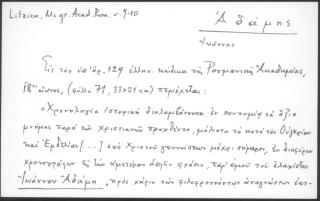 Litzica, Ms gr. Acad. Rom. σ. 9-10
Ἀδάμης
Ἰωάννης
Εἰς τὸν ὑπ' ἀρ. 129 ἑλλην. κώδικα τῆς Ρουμανικῆς Ἀκαδημίας,
ΙΗ' αἰῶνος, (φύλλα 71, 33x21 cm) περιέχεται:
"Χρονολογία ἱστορικὴ διαλαμβάνουσα ἐν συντομίᾳ τὰ ἄξια
μνήμης παρὰ τῶν χριστιανῶν πραχθέντα, μάλιστα τὰ κατὰ τὴν Οὐγκρίαν
καὶ Ἐρδελίαν [...] ἀπὸ Χριστοῦ γεννήσεως μέχρι σήμερον, ἐκ διαφόρων
χρονογράφων εἰς τὴν ἡμετέραν ἁπλῆν φράσιν, παρ' ἐμοῦ τοῦ ἐλαχίστου
Ἰωάννου Ἀδάμη, πρὸς χάριν τῶν φιλοφρονούντων ἀναγνώσεων